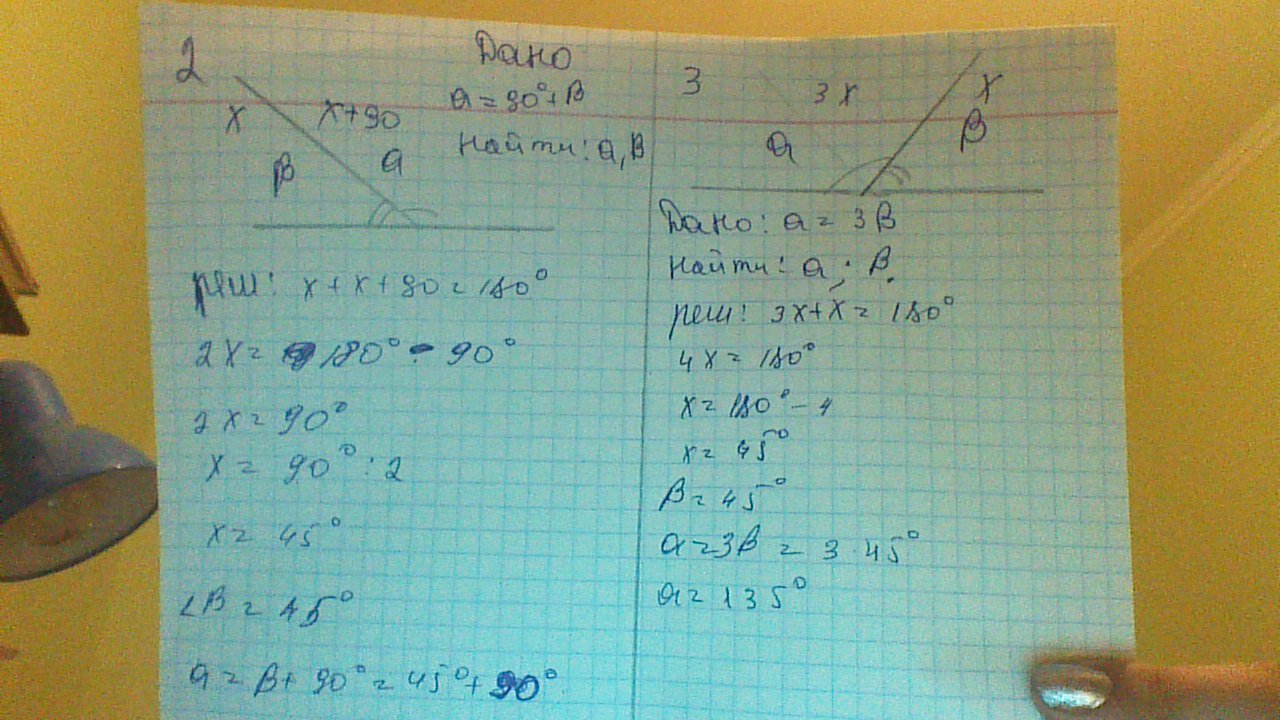 2
Дано
x
x+90
a=90°+β
β
a
Найти: a, β
реш: x+x+90=180°
2x= 180° - 90°
2x=90°
x= 90° :2
x= 45°
∠β= 45°
a=β+90°=45°+90°
3
3x
x
a
β
Дано: a= 3β
Найти: a; β.
реш: 3x+x= 180°
4x=180°
x=180° - 4
x= 45°
β=45°
a=3β = 3·45°
a=135°